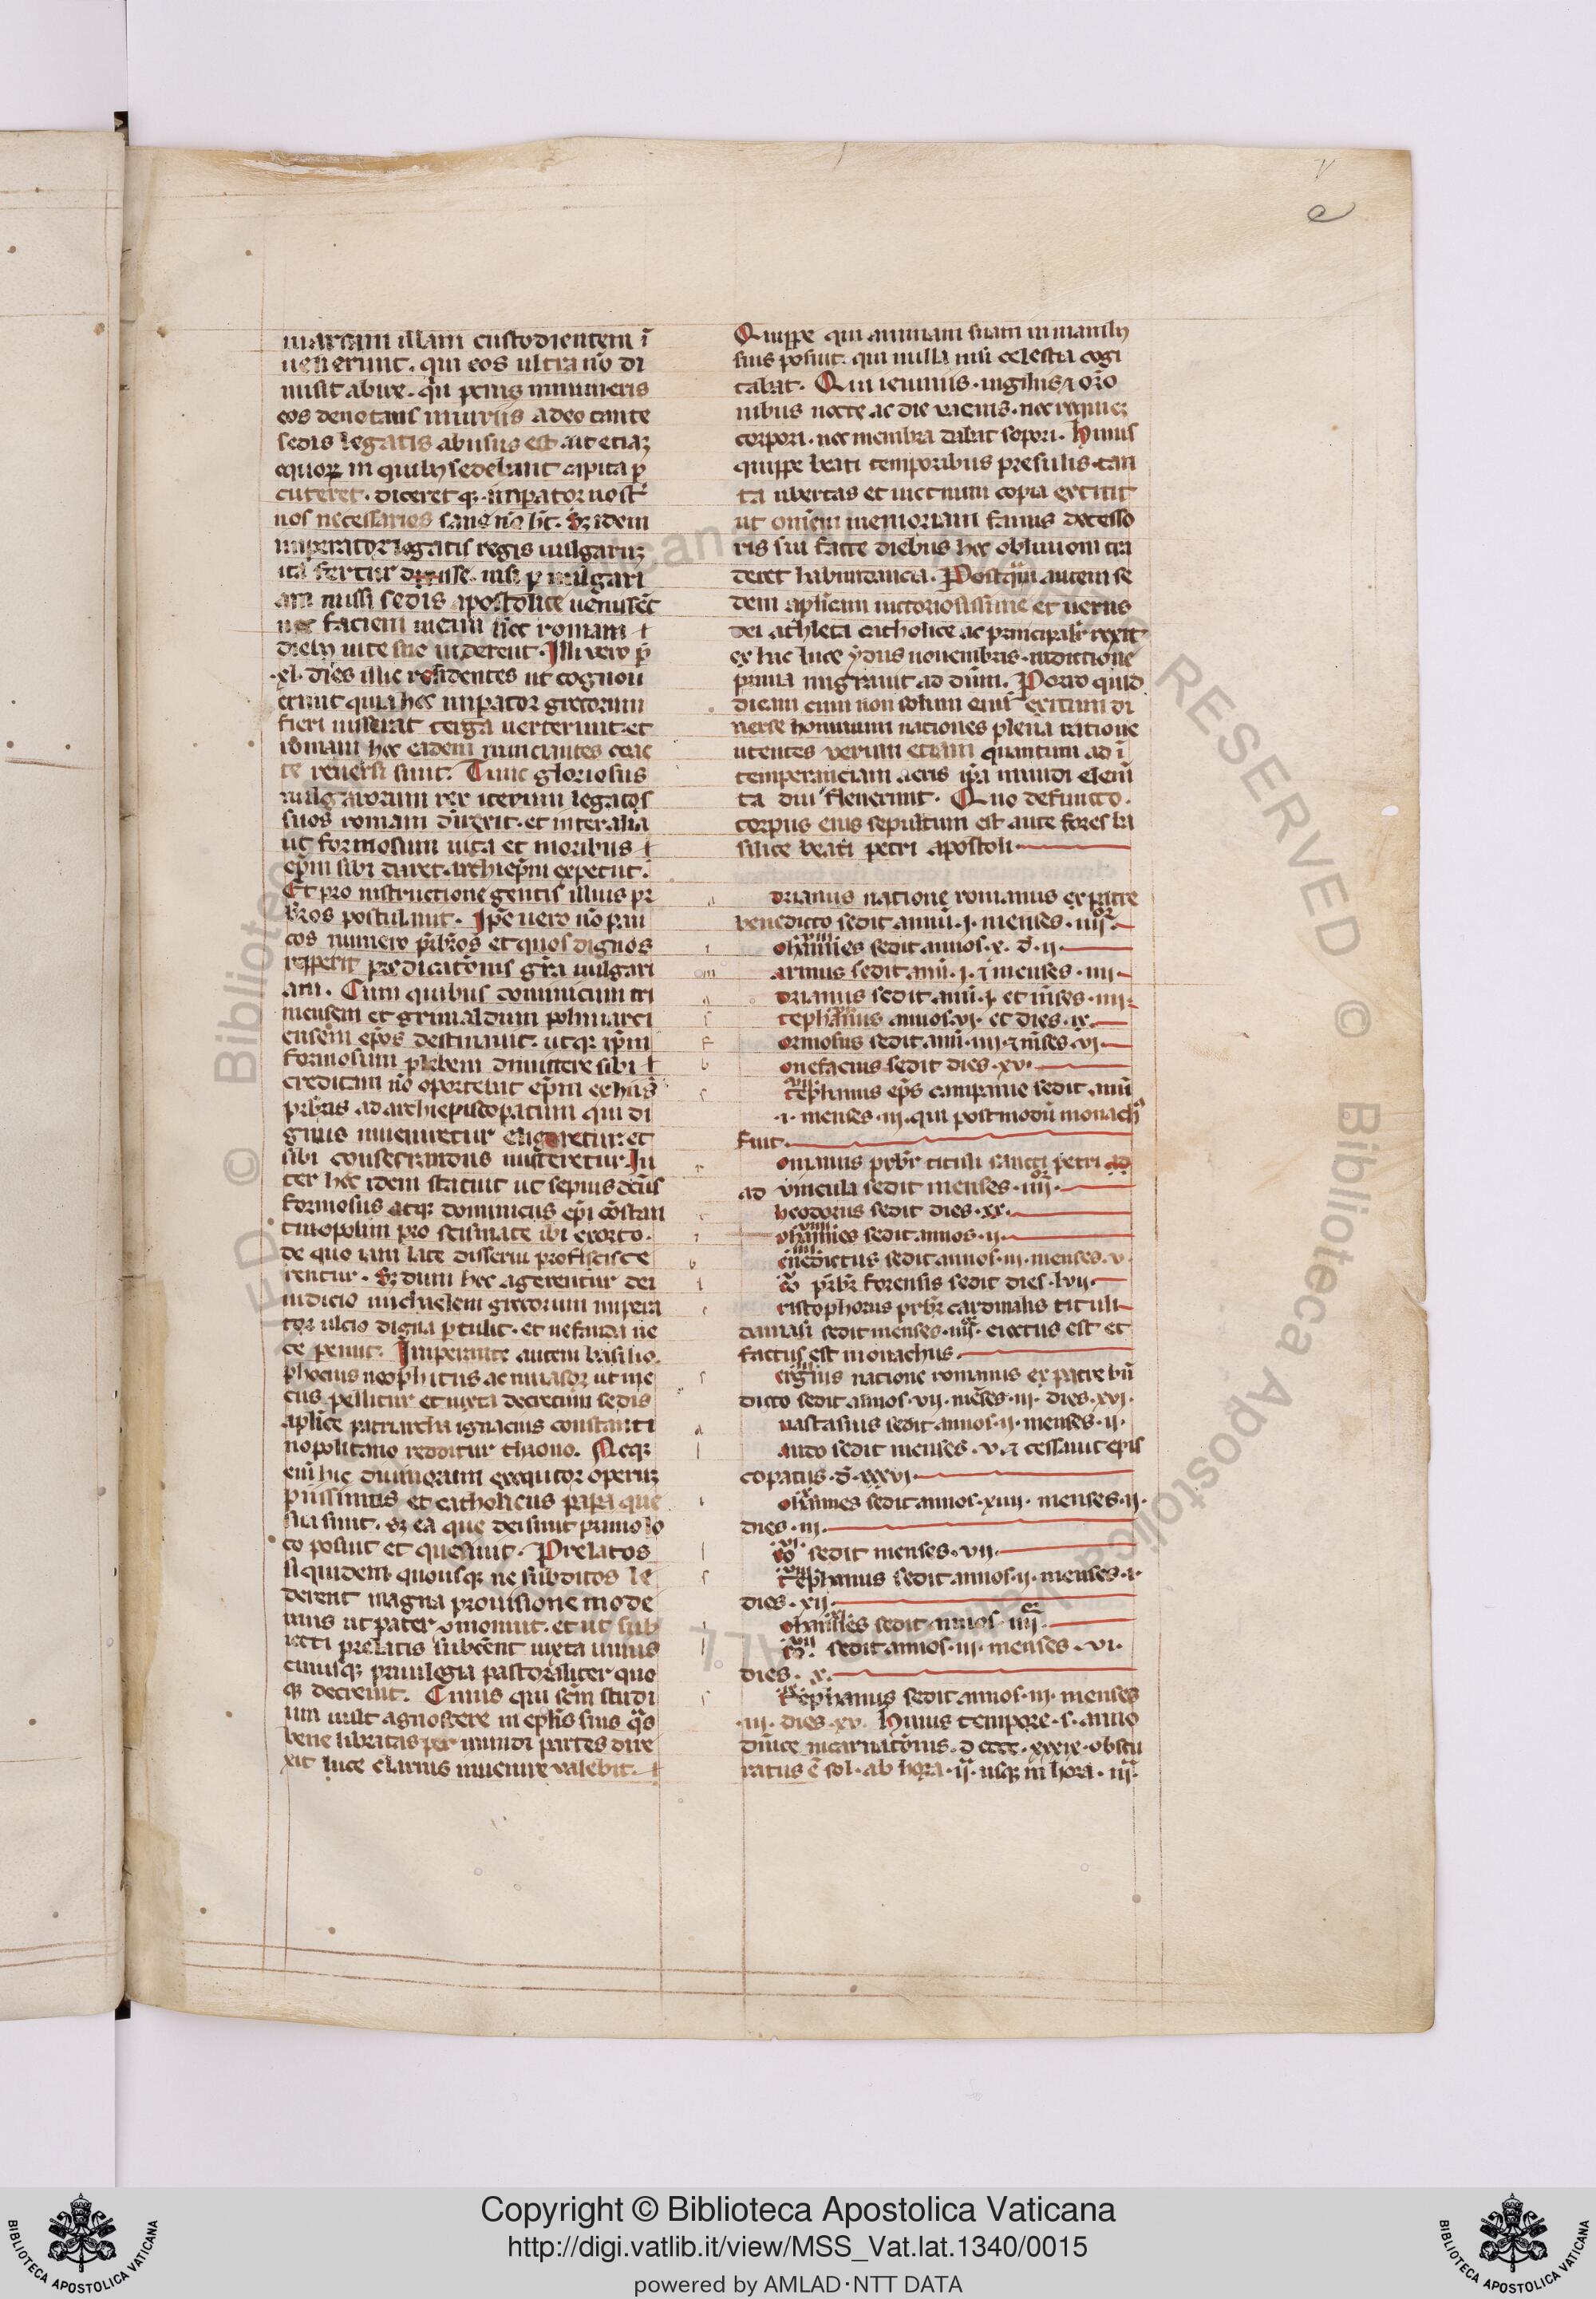 marcam illam custodientem ī
uenerunt. qui eos ultra nō di
misit abire. qī penis innumeris
eos deuotans iniuriis adeo tante
sedis legatis abusus est. ut etiaꝫ
equoꝝ in quibꝫ sedebant capita ꝑ
cuteret. diceret qꝫ. imperator nosť
nos necessarios sane nō hт̄. Sꝫ idem
imperator legatis regis uulgaruꝫ
ita fertur dixisse. nisi ꝑ uulgari
am missi sedis apostolice uenissēt
nec faciem meam nec romam
diebꝫ uite sue uiderent. Illi vero ꝑ
.xl. dies illic residentes ut cognou
erunt quia hec imperator grecorum
fieri iusserat terga uerterunt. et
romam hec eadem nunciantes ceac
te reuersi sunt. Tunc gloriosus
uulgarorum rex iterum legatos
suos romam direxit. et inter alia
ut formosum uita et moribus
ep̄m sibi daret. archiep̄m expetiit.
Et pro instructione gentis illius pr̄
br̄os postulauit. Ipse uero nō pau
cos numero pr̄br̄os et quos dignos
repperit predicatōnis gr̄a uulgari
am. Cum quibus dominicum tri
uensem et grimaldum polimarti
ensem ep̄os destinauit. utqꝫ ip̄m
formosum plebem dimittere sibi
creditam nō oportebat ep̄m ex his
pr̄bris ad archiepiscopatum qui di
gnus inueniretur eligeretur. et
sibi consecrandus mitteretur. In
ter hec idem statuit ut sepius dc̄us
formosus atqꝫ dominicus ep̄i cōstan
tinopolim pro scismate ibi exorto.
de quo iam late disserui proficisce
rentur. Sꝫ dum hec agerentur dei
iudicio michaelem grecorum impera
tor ulcio digna ꝑtulit. et nefanda ne
ce periit. Imperante autem basilio.
phocius neophitus ac inuasor ut me
cus pellitur et iuxta decretum sedis
apl̄ice patriarcha ignacius constanti
nopolitano redditur throno. Neqꝫ
enī hic diuinorum exequtor operuꝫ
piissimus et catholicus papa que
sua sunt. sꝫ ea que dei sunt primo lo
co posuit et quesiuit. Prelatos
siquidem quousqꝫ ne subditos le
derent magna prouisione mode
rans ut pater ꝯmonuit. et ut sub
iecti prelatis subeent iuxta unius
cuiusqꝫ priuilegia pastoraliter quo
qꝫ decreuit. Cuius qui sc̄m studi
um uult agnoscere in epl̄is suis q̄s
bene libratas per mundi partes dire
xit luce clarius inuenire valebit.
Quippe qui animam suam in manibꝫ
suis posuit. qui nulla nisi celestia cogi
tabat. Qui ieiuniis. uigiliis ⁊ or̄o
nibus nocte ac die vacuus. nec requieꝫ
corpori. nec membra dabat sopori. Huius
quippe beati temporibus presulis. tan
ta ubertas et uictuum copia extitit
ut omnem memoriam famis decesso
ris sui facte diebus hec obliuioni tra
deret habundancia. Postq̄m autem se
dem apl̄icam uictoriosissime et uerus
dei athleta catholice ac principalr̄ rexit
ex hac luce ydus nouembris. indictione
prima migrauit ad dn̄m. Porro quid
dicam cum non solum eius exitum di
uerse hominum nationes plena ratione
utentes verum etiam quantum ad ī
temperanciam aeris ipā mundi elem̄
ta diu fleuerunt. Quo defuncto.
corpus eius sepultum est ante fores ba
silice beati petri apostoli.
a drianus natione romanus ex patre
benedicto sedit annū .i. menses .iiij.or
i ohannes viii sedit annos .x. d̄. ij
m arinus sedit ann̄ .j. ⁊ menses .iiij
a drianus sedit ann̄ .j. et m̄ses .iiij.
s tephanus annos .vi. et dies .ix.
f ormosus sedit ann̄ .iiij. ⁊ m̄ses .vj.
b onefacius sedit dies .xv.
s tephanus ep̄s campanie sedit annū
.i. menses .iij. qui postmodū monachꝰ
fuit.
r omanus pr̄br tituli sancti petri ad
ad vincula sedit menses .iiij.or
t heodorus sedit dies .xx.
i ohannes sedit annos .ij.
b enedictus iiii sedit annos .iij. menses .v.
l eō pr̄br forensis sedit dies .lvij.
c ristophorus pr̄br cardinalis tituli
damasi sedit menses .iiij.or eiectus est et
factus est monachus.
s ergius iii natione romanus ex patre bn̄
dicto sedit annos .vij. mēses .iij. dies .xvi.
a nastasius sedit annos .ij. menses .ij.
l ando sedit menses .v. ⁊ cessauit epis
copatus .d̄. xxxvj.
i ohannes x sedit annos .xiiij. menses .ij.
dies .iij.
l eō vi sedit menses .vij.
s tephanus sedit annos .ij. menses .i.
dies .xij.
i ohannes sedit annos .iiij.or
l eō vii sedit annos .iij. menses .vi.
dies .x.
s tephanus sedit annos .iij. menses
.iij. dies .xv. Huius tempore .s. anno
diuice incarnatōnis .dcccc.xxxix. obscu
ratus ē sol. ab hora .ij.a usqꝫ in hora .iij.a
Copyright © Biblioteca Apostolica Vaticana
http://digi.vatlib.it/view/MSS_Vat.lat.1340/0015
powered by AMLAD·NTT DATA
BIBLIOTECA APOSTOLICA VATICANA
BIBLIOTECA APOSTOLICA VATICANA